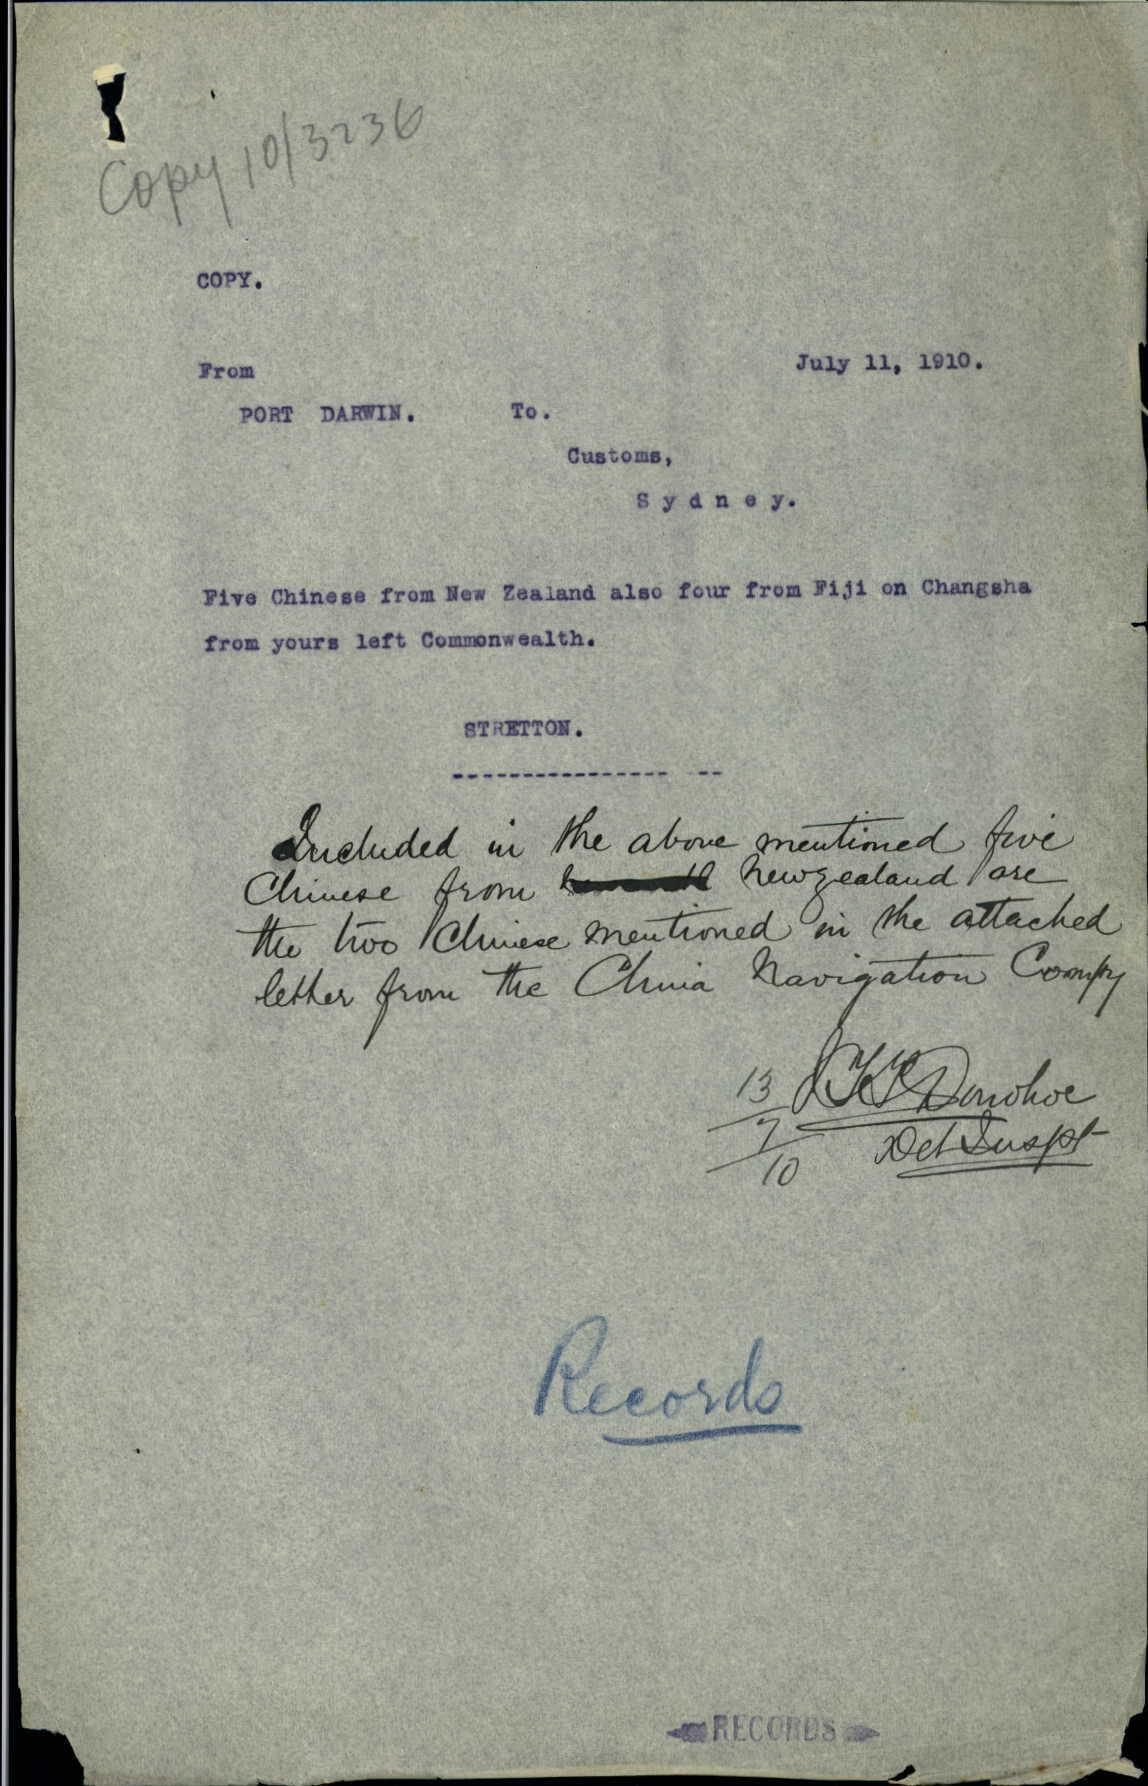 Copy 10/3236
COPY.
From
July 11, 1910.
PORT DARWIN. To.
Customs,
Sydney.
Five Chinese from New Zealand also four from Fiji on Changsha
from yours left Commonwealth.
STRETTON.
Included in the above mentioned five
Chinese from New Zealand are
the two Chinese mentioned in the attached
letter from the China Navigation Compy
13/7/10
Donohoe
Det Inspt
Records
RECORDS